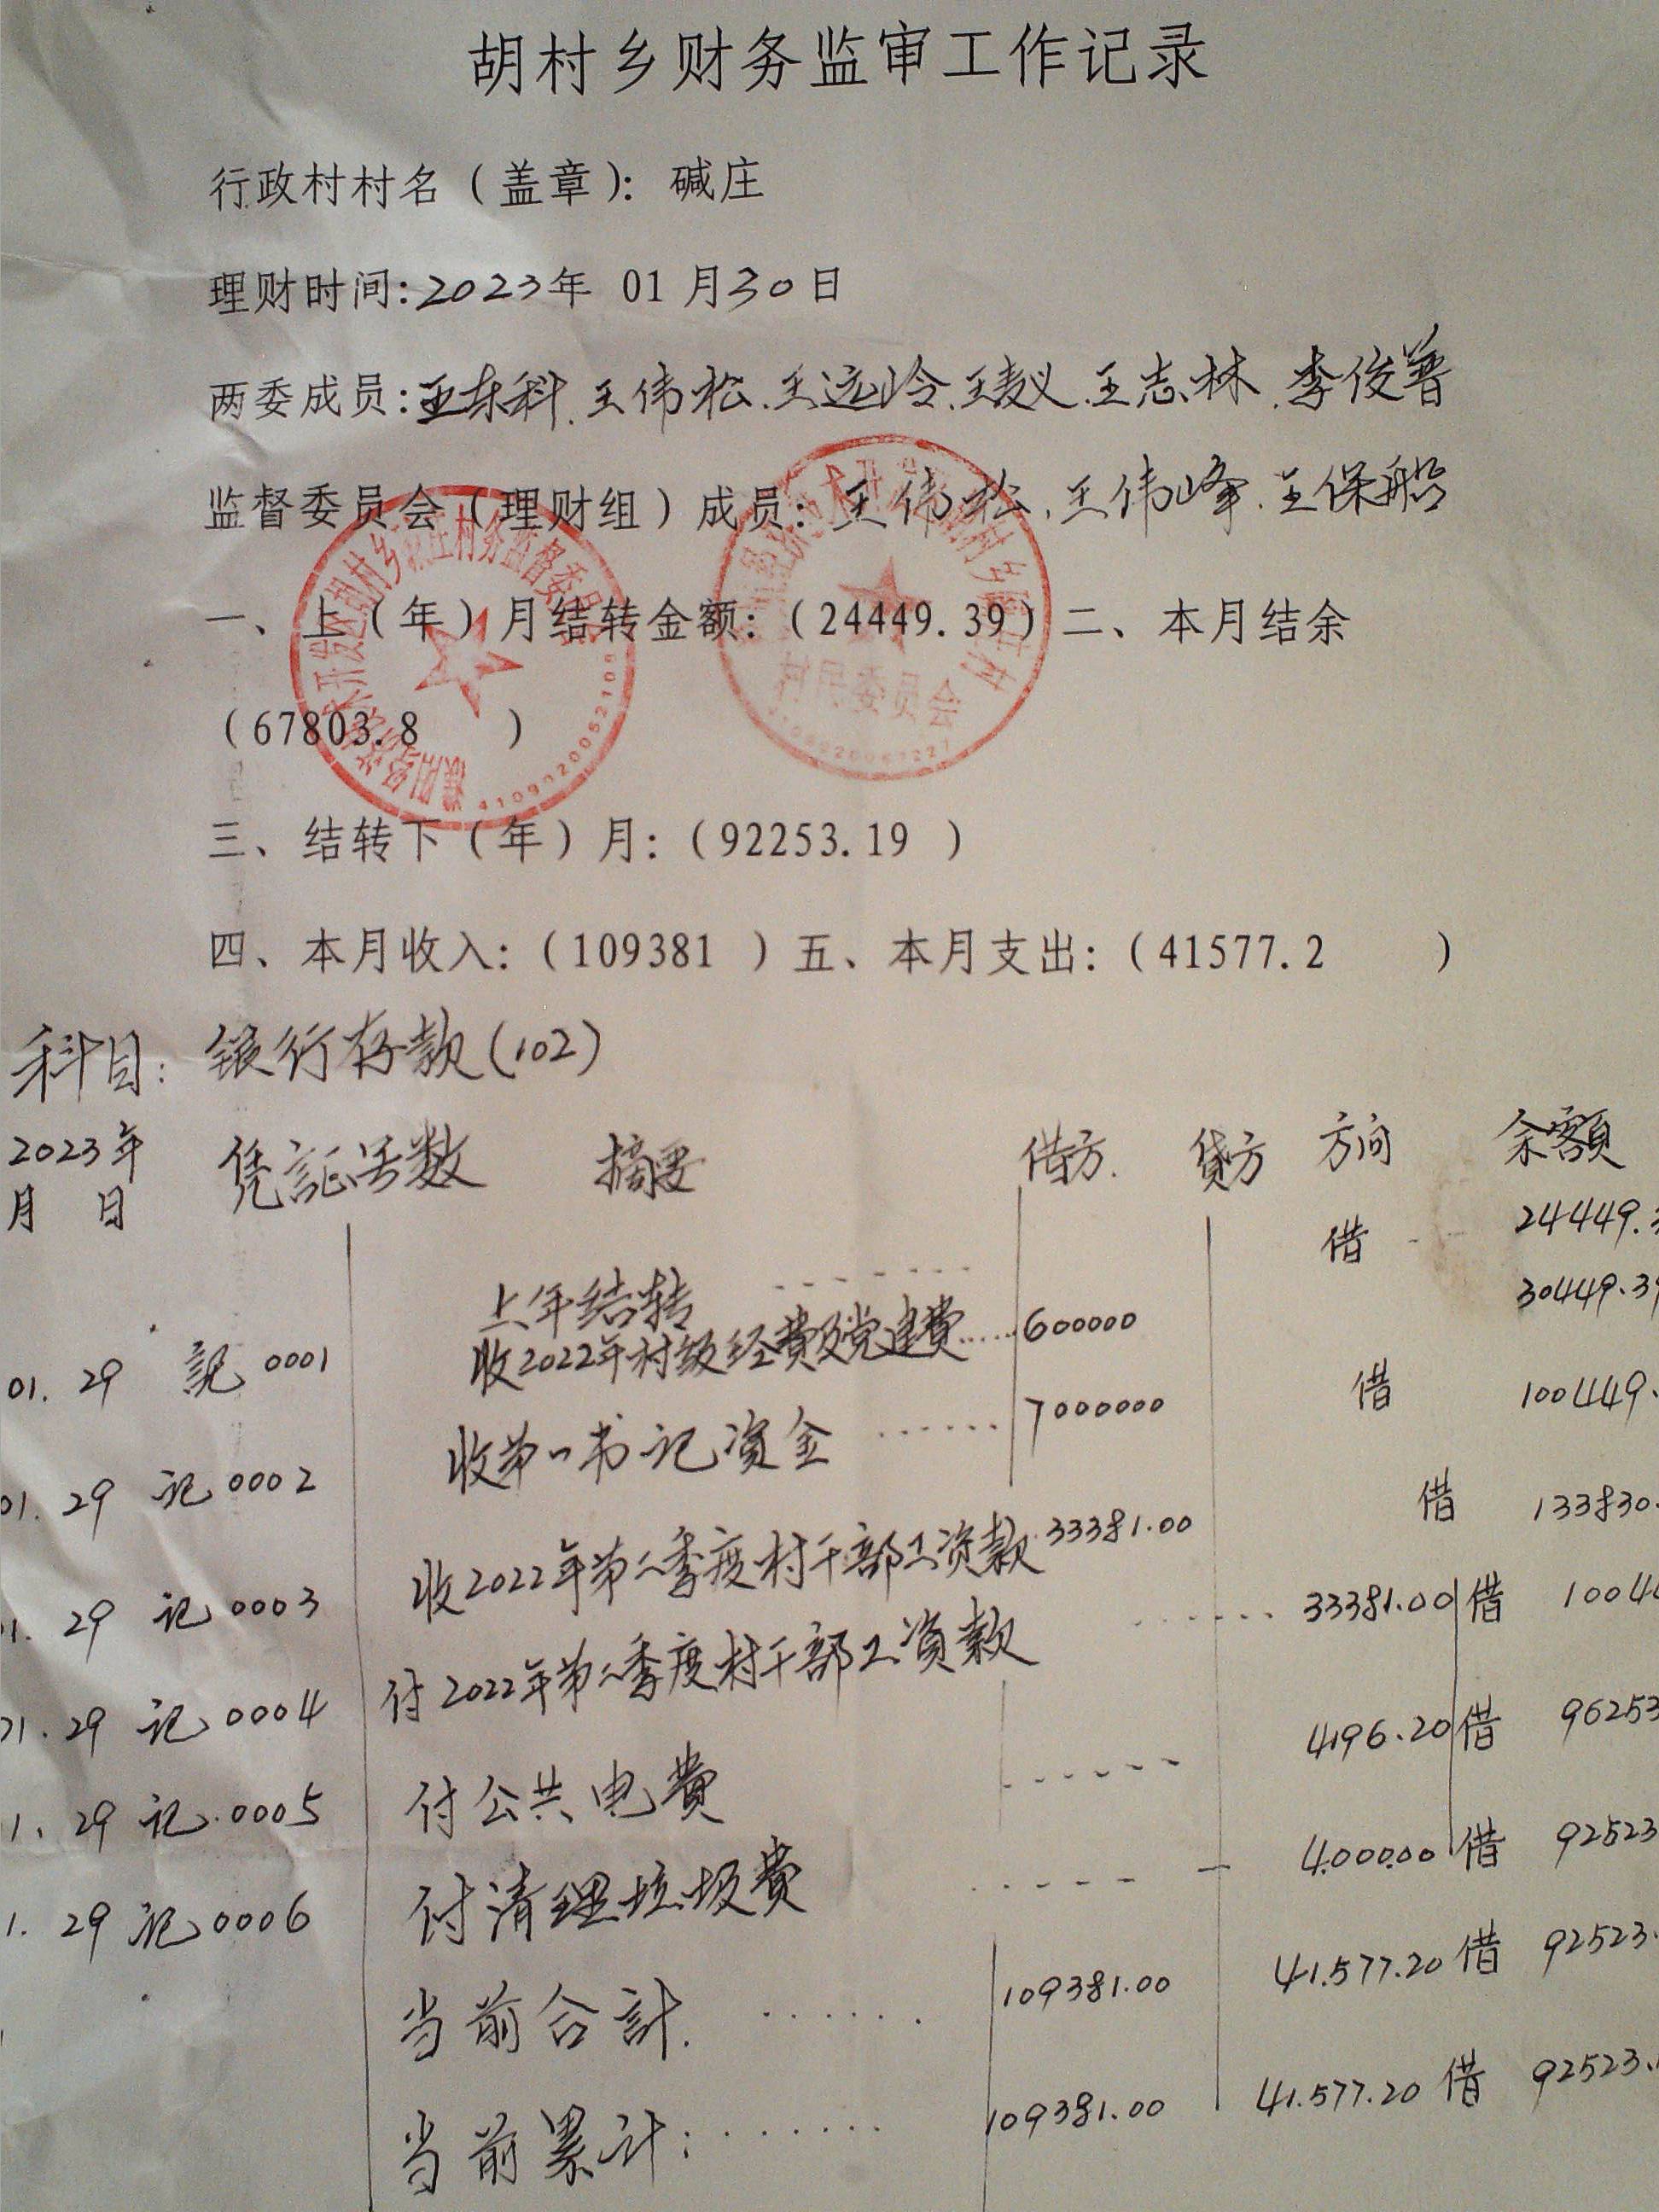 胡村乡财务监审工作记录
行政村村名（盖章）：碱庄
理财时间：2023年 01月30日
两委成员：王东科.王伟松.王远岭.王志林.李俊普
监督委员会（理财组）成员：王伟松.王伟峰.王保船
一、上（年）月结转金额：（24449.39）二、本月结余
（67803.8 ）
三、结转下（年）月：（92253.19 ）
四、本月收入：（109381 ）五、本月支出：（41577.2 ）
科目：银行存款(102)
2023年 凭証号数 摘要 借方. 贷方 方向 余额
月 日
上年结转 借 24449.
01. 29 記 0001 收2022年村级经费及党建费 600000 30449.39
01. 29 记 0002 收第一书记资金 7000000 借 100449.
1. 29 记 0003 收2022年第二季度村干部工资款 33381.00 借 133830.
01. 29 记 0004 付2022年第二季度村干部工资款 33381.00 借 1004
1. 29 记 0005 付公共电費 4196.20 借 96253
1. 29 记 0006 付清理垃圾費 4000.00 借 92523
当前合計. 109381.00 41.577.20 借 92523.
当前累计： 109381.00 41.577.20 借 92523.
村民委员会
村务监督委员